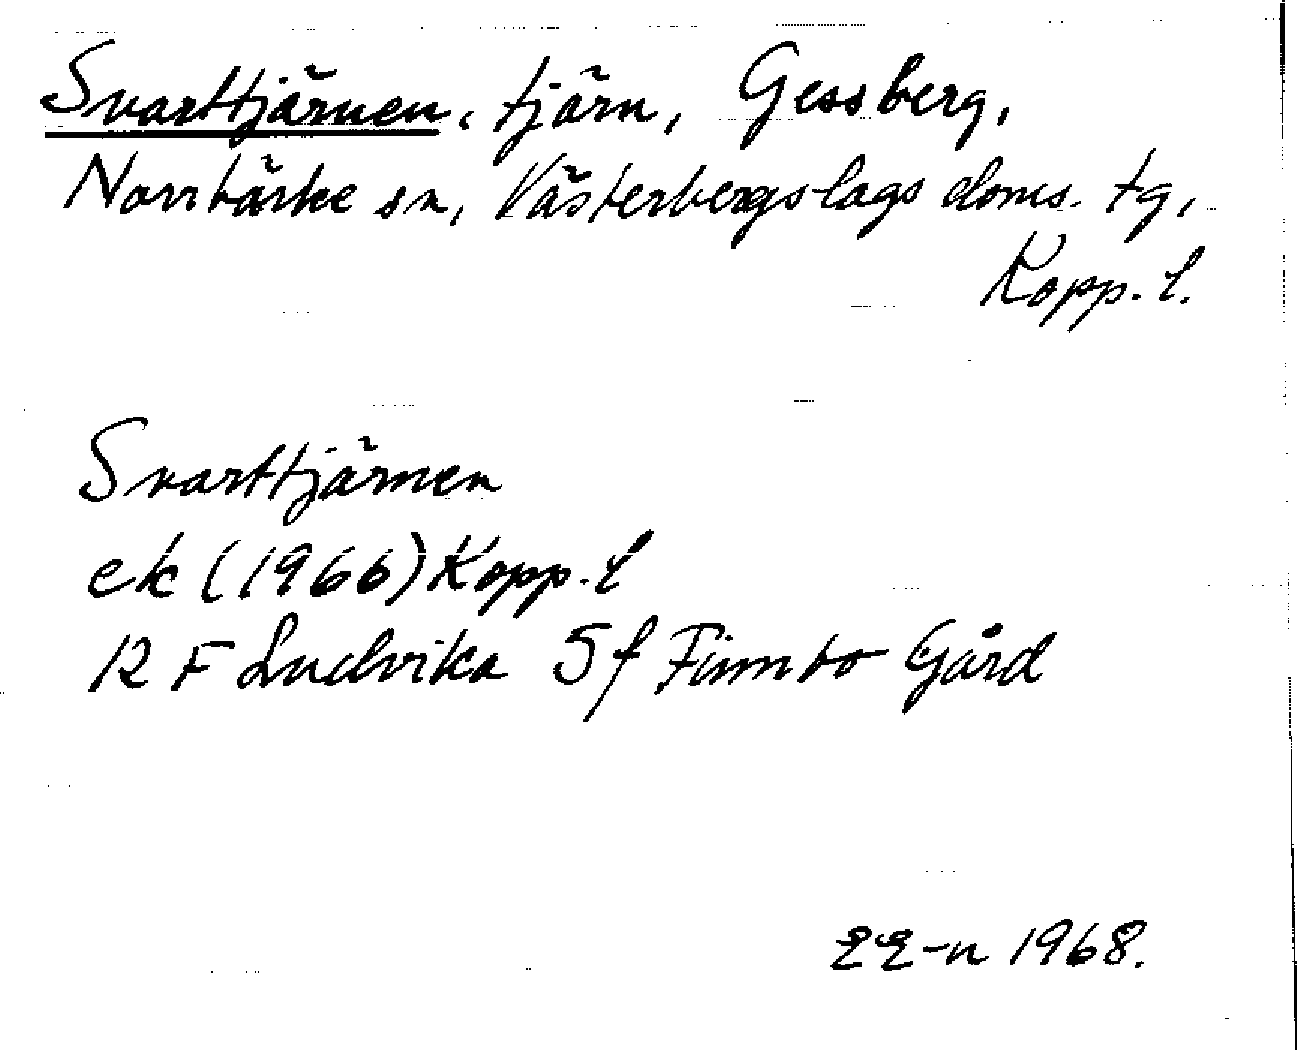 Svarttjärnen, tjärn, Gessberg,
Norrbärke sn, Västerbergslags doms. tg,
Kopp. l.
Svarttjärnen
ek (1966) Kopp. l
12 F Ludvika 5f Finnbo Gård
1968.